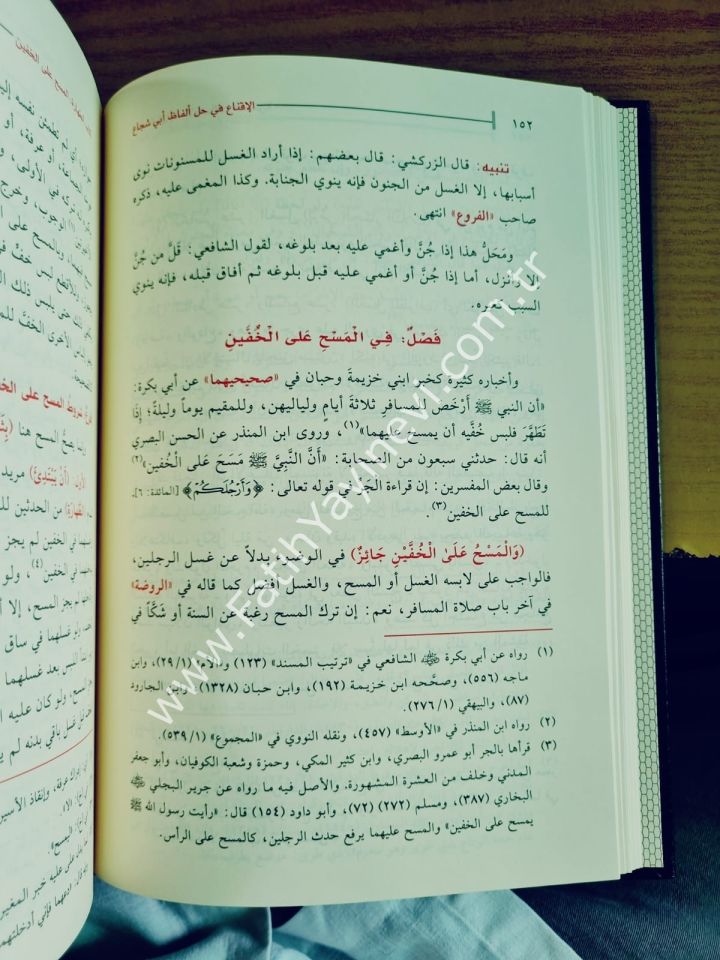 ١٥٢
الإقناع في حل ألفاظ أبي شجاع
تنبيه: قال الزركشي: قال بعضهم: إذا أراد الغسل للمسنونات نوى
أسبابها، إلا الغسل من الجنون فإنه ينوي الجنابة. وكذا المغمى عليه، ذكره
صاحب «الفروع» انتهى.
ومَحَلُّ هذا إذا جُنَّ وأغمي عليه بعد بلوغه، لقول الشافعي: قَلَّ من جُنَّ
إلا وأنزل، أما إذا جُنَّ أو أغمي عليه قبل بلوغه ثم أفاق قبله، فإنه ينوي
السبب كغيره.
فَصْلٌ: فِي الْمَسْحِ عَلى الْخُفَّينِ
وأخباره كثيرة كخبر ابني خزيمةَ وحبان في «صحيحيهما» عن أبي بكرة:
«أن النبي ﷺ أَرْخَصَ للمسافرِ ثلاثةَ أيامٍ ولياليهن، وللمقيم يوماً وليلةً؛ إِذَا
تَطَهَّرَ فلبس خُفَّيه أن يمسح عليهما»(١)، وروى ابن المنذر عن الحسن البصري
أنه قال: حدثني سبعون من الصحابة: «أَنَّ النَّبِيَّ ﷺ مَسَحَ عَلَى الْخُفَّيْنِ»(٢)
وقال بعض المفسرين: إن قراءة الجَرِّ في قوله تعالى: ﴿وَأَرْجُلَكُمْ﴾ [المائدة: ٦]،
للمسح على الخفين(٣).
(وَالْمَسْحُ عَلَىٰ الْخُفَّيْنِ جَائِزٌ) في الوضوء بدلاً عن غسل الرجلين،
فالواجب على لابسه الغسل أو المسح، والغسل أفضل كما قاله في «الروضة»
في آخر باب صلاة المسافر، نعم: إن ترك المسح رغبة عن السنة أو شَكًّا في
(١) رواه عن أبي بكرة ﷺ الشافعي في «ترتيب المسند» (١٢٣) و«الأم» (٢٩/١)، وابن
ماجه (٥٥٦)، وصحَّحه ابن خزيمة (١٩٢)، وابن حبان (١٣٢٨)، وابن الجارود
(٨٧)، والبيهقي (٢٧٦/١).
(٢) رواه ابن المنذر في «الأوسط» (٤٥٧)، ونقله النووي في «المجموع» (٥٣٩/١).
(٣) قرأها بالجر أبو عمرو البصري، وابن كثير المكي، وحمزة وشعبة الكوفيان، وأبو جعفر
المدني وخلف من العشرة المشهورة. والأصل فيه ما رواه عن جرير البجلي
البخاري (٣٨٧)، ومسلم (٢٧٢) (٧٢)، وأبو داود (١٥٤) قال: «رأيت رسول الله ﷺ
يمسح على الخفين» والمسح عليهما يرفع حدث الرجلين، كالمسح على الرأس.
www.FatihYayinevi.com.tr